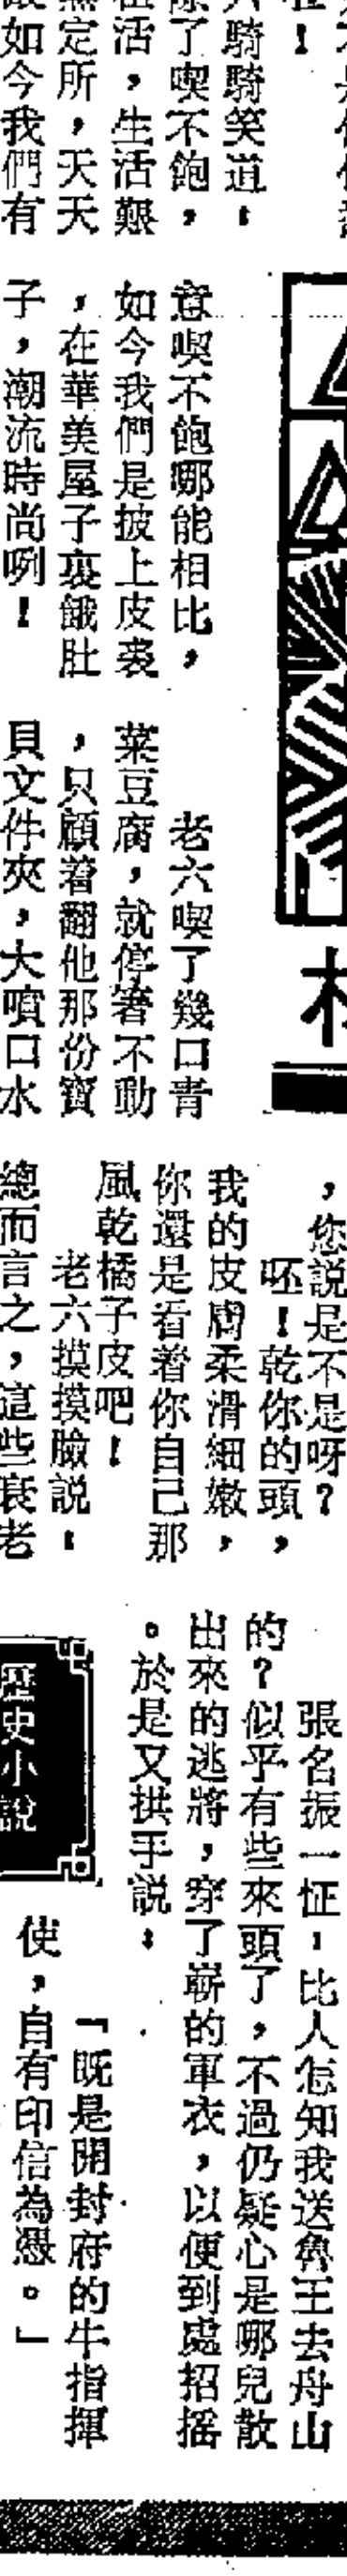 六騎騎笑道：
除了喫不飽，
在活，生活艱
無定所，天天
如今我們有
意喫不飽哪能相比，
如今我們是披上皮裘
，在華美屋子裏餓肚
子，潮流時尚咧！
老六喫了幾口青
菜豆腐，就停箸不動
，只顧着翻他那份寶
貝文件夾，大噴口水
，您說是不是呀？
呸！乾你的頭，
我的皮膚柔滑細嫩，
你還是看着你自己那
風乾橘子皮吧！
老六摸摸臉説：
總而言之，這些衰老
張名振一怔，比人怎知我送魯王去舟山
的？似乎有些來頭了，不過仍疑心是哪兒散
出來的逃將，穿了嶄的軍衣，以便到處招搖
。於是又拱手説：
「既是開封府的牛指揮
使，自有印信為憑。」
歷史小說